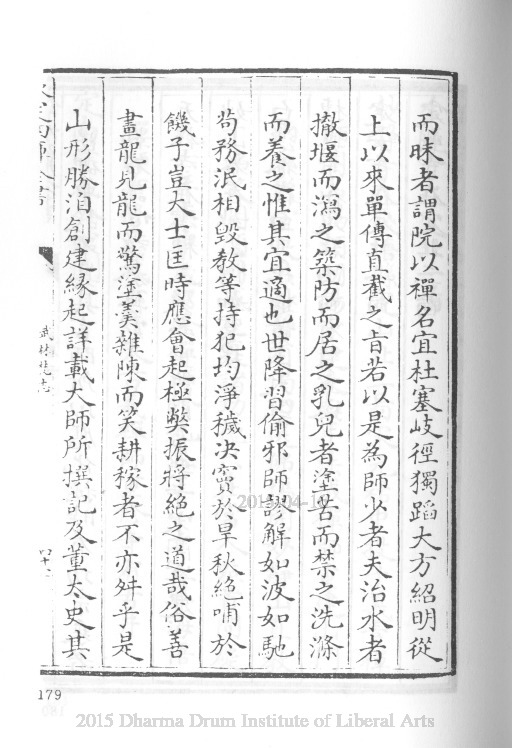 而昧者謂院以禪名宜杜塞岐徑獨蹈大方紹明從
上以來單傳直截之旨若以是為師少者夫治水者
撤堰而瀉之築防而居之乳兒者塗苦而禁之洗滌
而養之惟其宜適也世降習偷邪師謬解如波如馳
茍務泯相毀教等持犯均淨穢决竇於旱秋絕哺於
饑子豈大士匡時應會起極獘振將絕之道哉俗善
畫龍見龍而驚塗羹雜陳而笑耕稼者不亦舛乎是
山形勝洎創建緣起詳載大師所撰記及董太史其
武林梵志
179
2015 Dharma Drum Institute of Liberal Arts